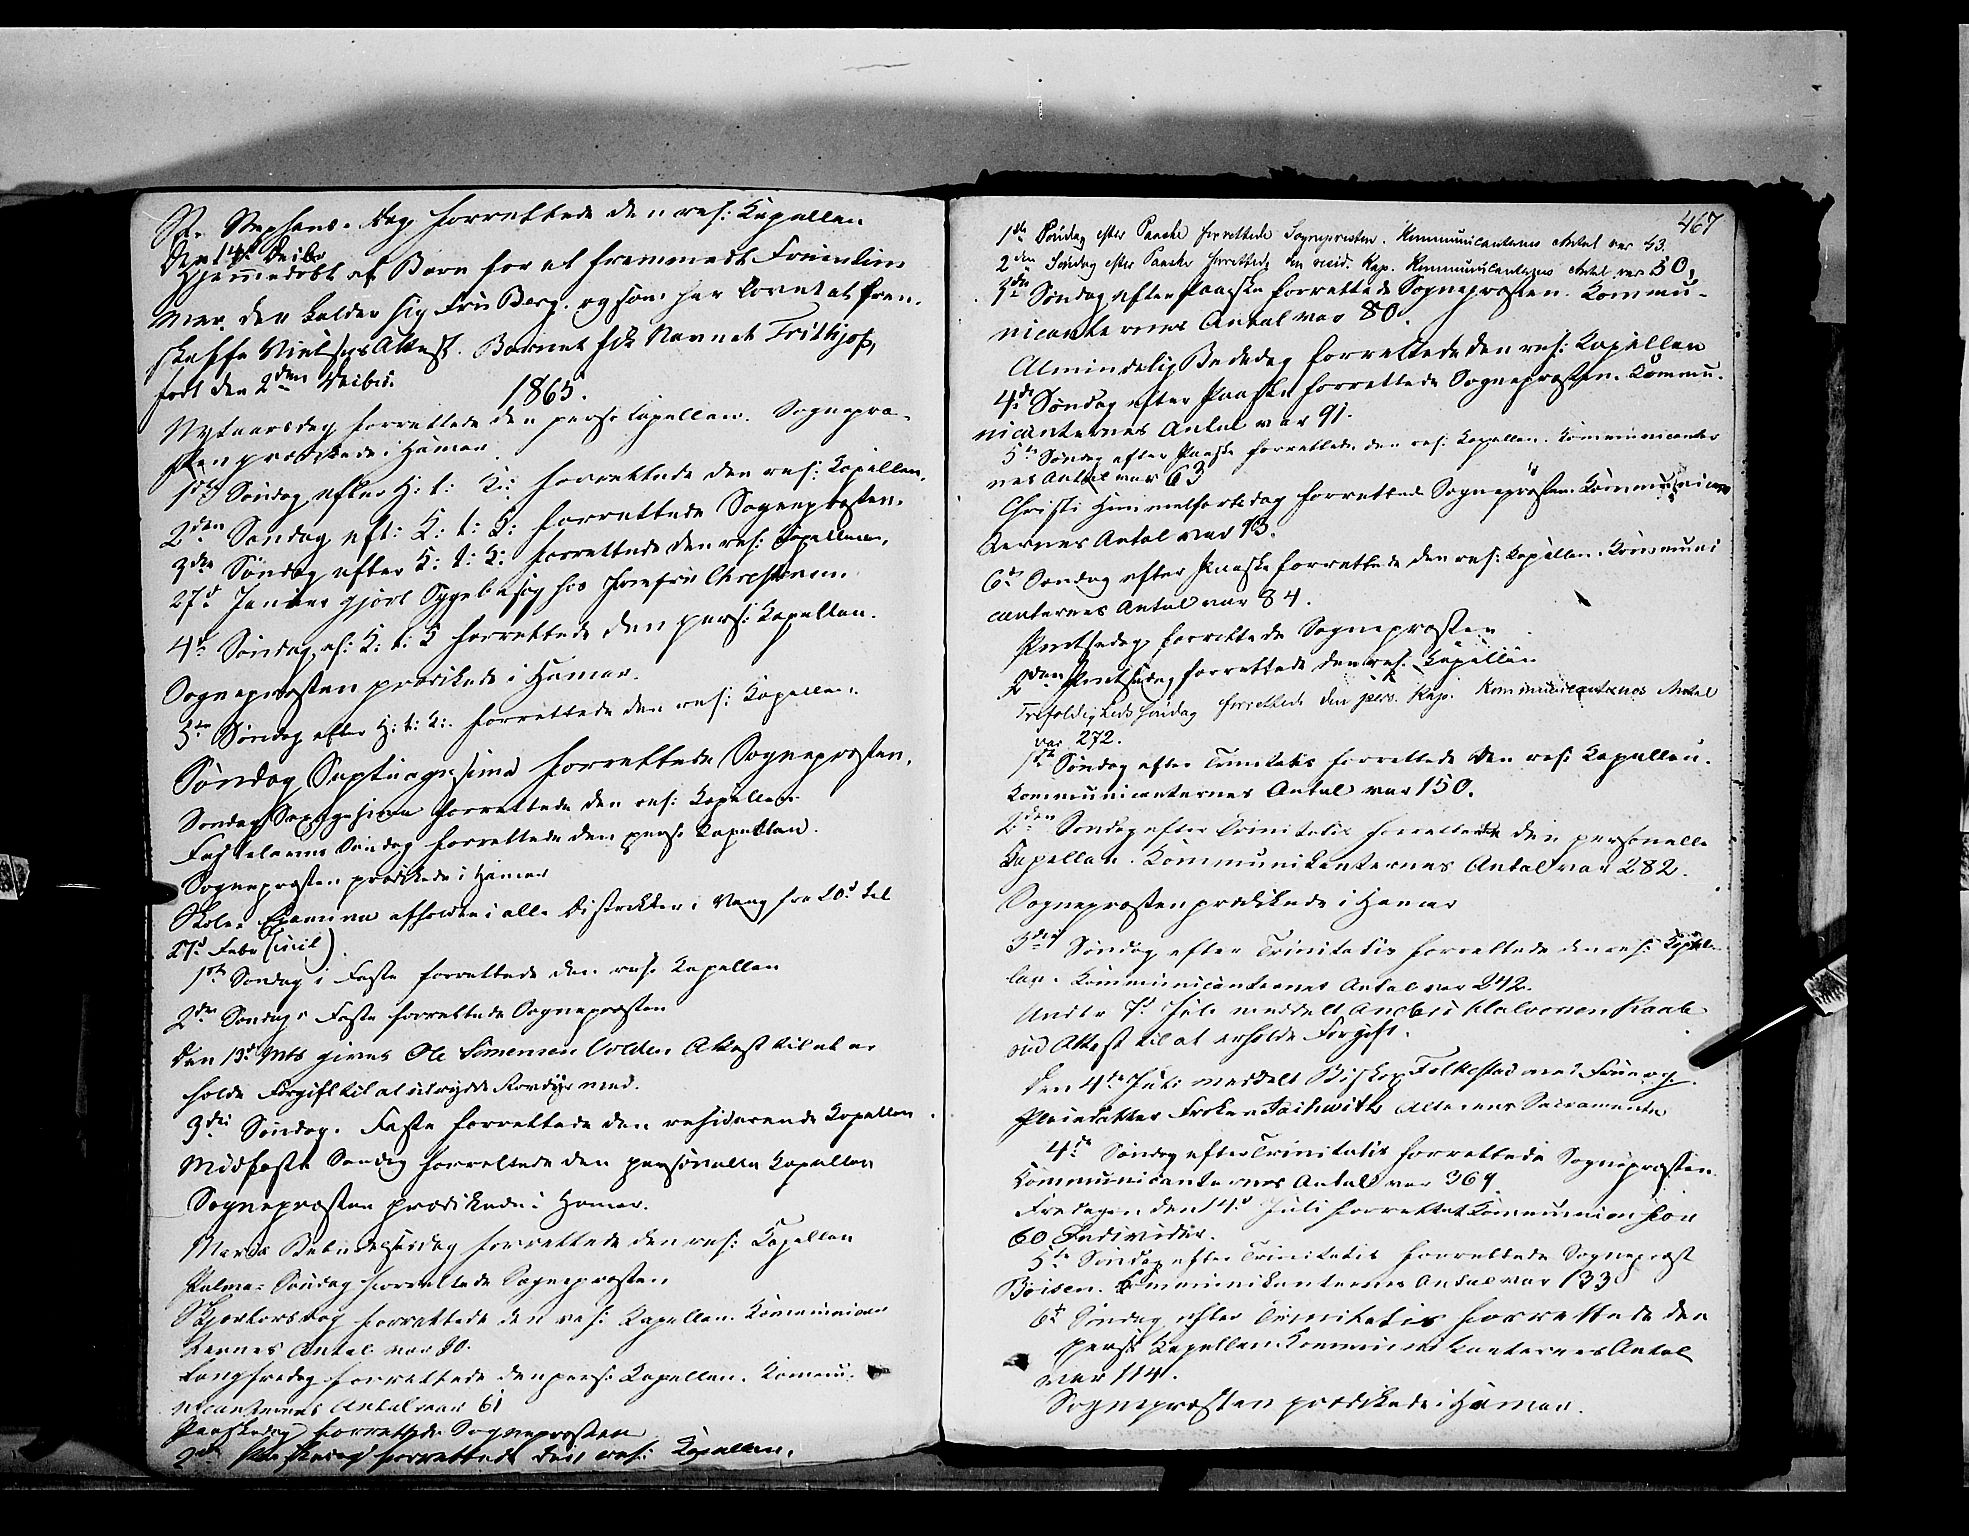 St. Stephans-dag forrettede den res: Kapellan
Den 14de Decbr
Hjemmedøbt et Barn for et fremmedt Fruentim
mer, der kalder sig Fru Berg, og som har lovet at frem-
skaffe Vielses Attest. Barnet fik Navnet Frithjof,
født den 2den Decbr.
1865.
Nytaarsdag forrettede den pers: Kapellan. Sognepræ-
sten prædikede i Hamar
1ste Søndag efter H: t: K: forrettede den res: Kapellan.
2den Søndag eft: H: t: K: forrettede Sognepræsten.
3die Søndag efter H: t: K: forrettede den res: Kapellan.
27d Januar gjort Sygebesøg hos Jomfru Christensen
4de Søndag ef: H: t: K forrettede den pers: Kapellan.
Sognepræsten prædikede i Hamar.
5te Søndag efter H: t: K: forrettede den res: Kapellan.
Søndag Septuagesima forrettede Sognepræsten.
Søndag Sexagesima forrettede den res: Kapellan
Fastelavns Søndag forrettede den pers: Kapellan.
Sognepræsten prædikede i Hamar
Skole-Examina afholdte i alle Distrikter i Vang fra 20d til
27d Febr (incl).
1ste Søndag i Faste forrettede den res: Kapellan
2den Søndag i Faste forrettede Sognepræsten
Den 13d Mts gives Ole Simensen Volden Attest til at er
holde Forgift til at udrydde Rovdyr med.
3die Søndag i Faste forrettede den residerende Kapellan
Midfaste Søndag forrettede den personelle Kapellan
Sognepræsten prædikede i Hamar.
Mariæ Bebudelsesdag forrettede den res: Kapellan
Palme-Søndag forrettede Sognepræsten
Skjærtorsdag forrettede den res: Kapellan. Kommunican
ternes Antal var 80.
Langfredag forrettede den pers: Kapellan. Kommu-
nicanternes Antal var 61
Paaskedag forrettede Sognepræsten
2den Paaskedag forrettede den res: Kapellan.
467
1ste Søndag efter Paaske forrettede Sognepresten. Kommunicanternes Antal var 43.
2den Søndag efter Paaske forrettede den resid. Kap. Kommunicanternes Antal var 50.
3die Søndag efter Paaske forrettede Sognepræsten. Kommu-
nicanternes Antal var 80.
Almindelig Bededag forrettede den res: Kapellan
4de Søndag efter Paaske forrettede Sognepræsten. Kommu-
nicanternes Antal var 91.
5te Søndag efter Paaske forrettede den res: Kapellan. Kommunicanter
nes Antal var 63
Christi Himmelfartsdag forrettede Sognepræsten. Kommunican
ternes Antal var 13.
6te Søndag efter Paaske forrettede den res: Kapellan. Kommuni
canternes Antal var 84.
Pintsedag forrettede Sognepræsten
2den Pintsedag forrettede den res: Kapellan
Trefoldigheds søndag forrettede den pers. Kap. Kommunicanternes Antal
var 272.
1ste Søndag efter Trinitatis forrettede den res: Kapellan.
Kommunicanternes Antal var 150.
2den Søndag efter Trinitatis forrettede den personelle
Kapellan. Kommunikanternes Antal var 282.
Sognepræsten prædikede i Hamar
3die Søndag efter Trinitatis forrettede den res: Kapel-
lan. Kommunicanternes Antal var 242.
Under 7d Juli meddelt Anders Halvorsen Kaab
rud Attest til at erholde Forgift.
Den 4de Juli meddelt Biskop Folkestad med Frue og
Pleiedatter Frøken Alterens Sacramente
4de Søndag efter Trinitatis forrettede Sognepræsten
Kommunicanternes Antal var 364.
Fredagen den 14d Juli forrettet Kommunion for
60 Individer.
5te Søndag efter Trinitatis forrettede Sognepræst
Boisen. Kommunikanternes Antal var 133
6te Søndag efter Trinitatis forrettede den
pers: Kapellan Kommunikanternes Antal
var 114.
Sognepræsten prædikede i Hamar.